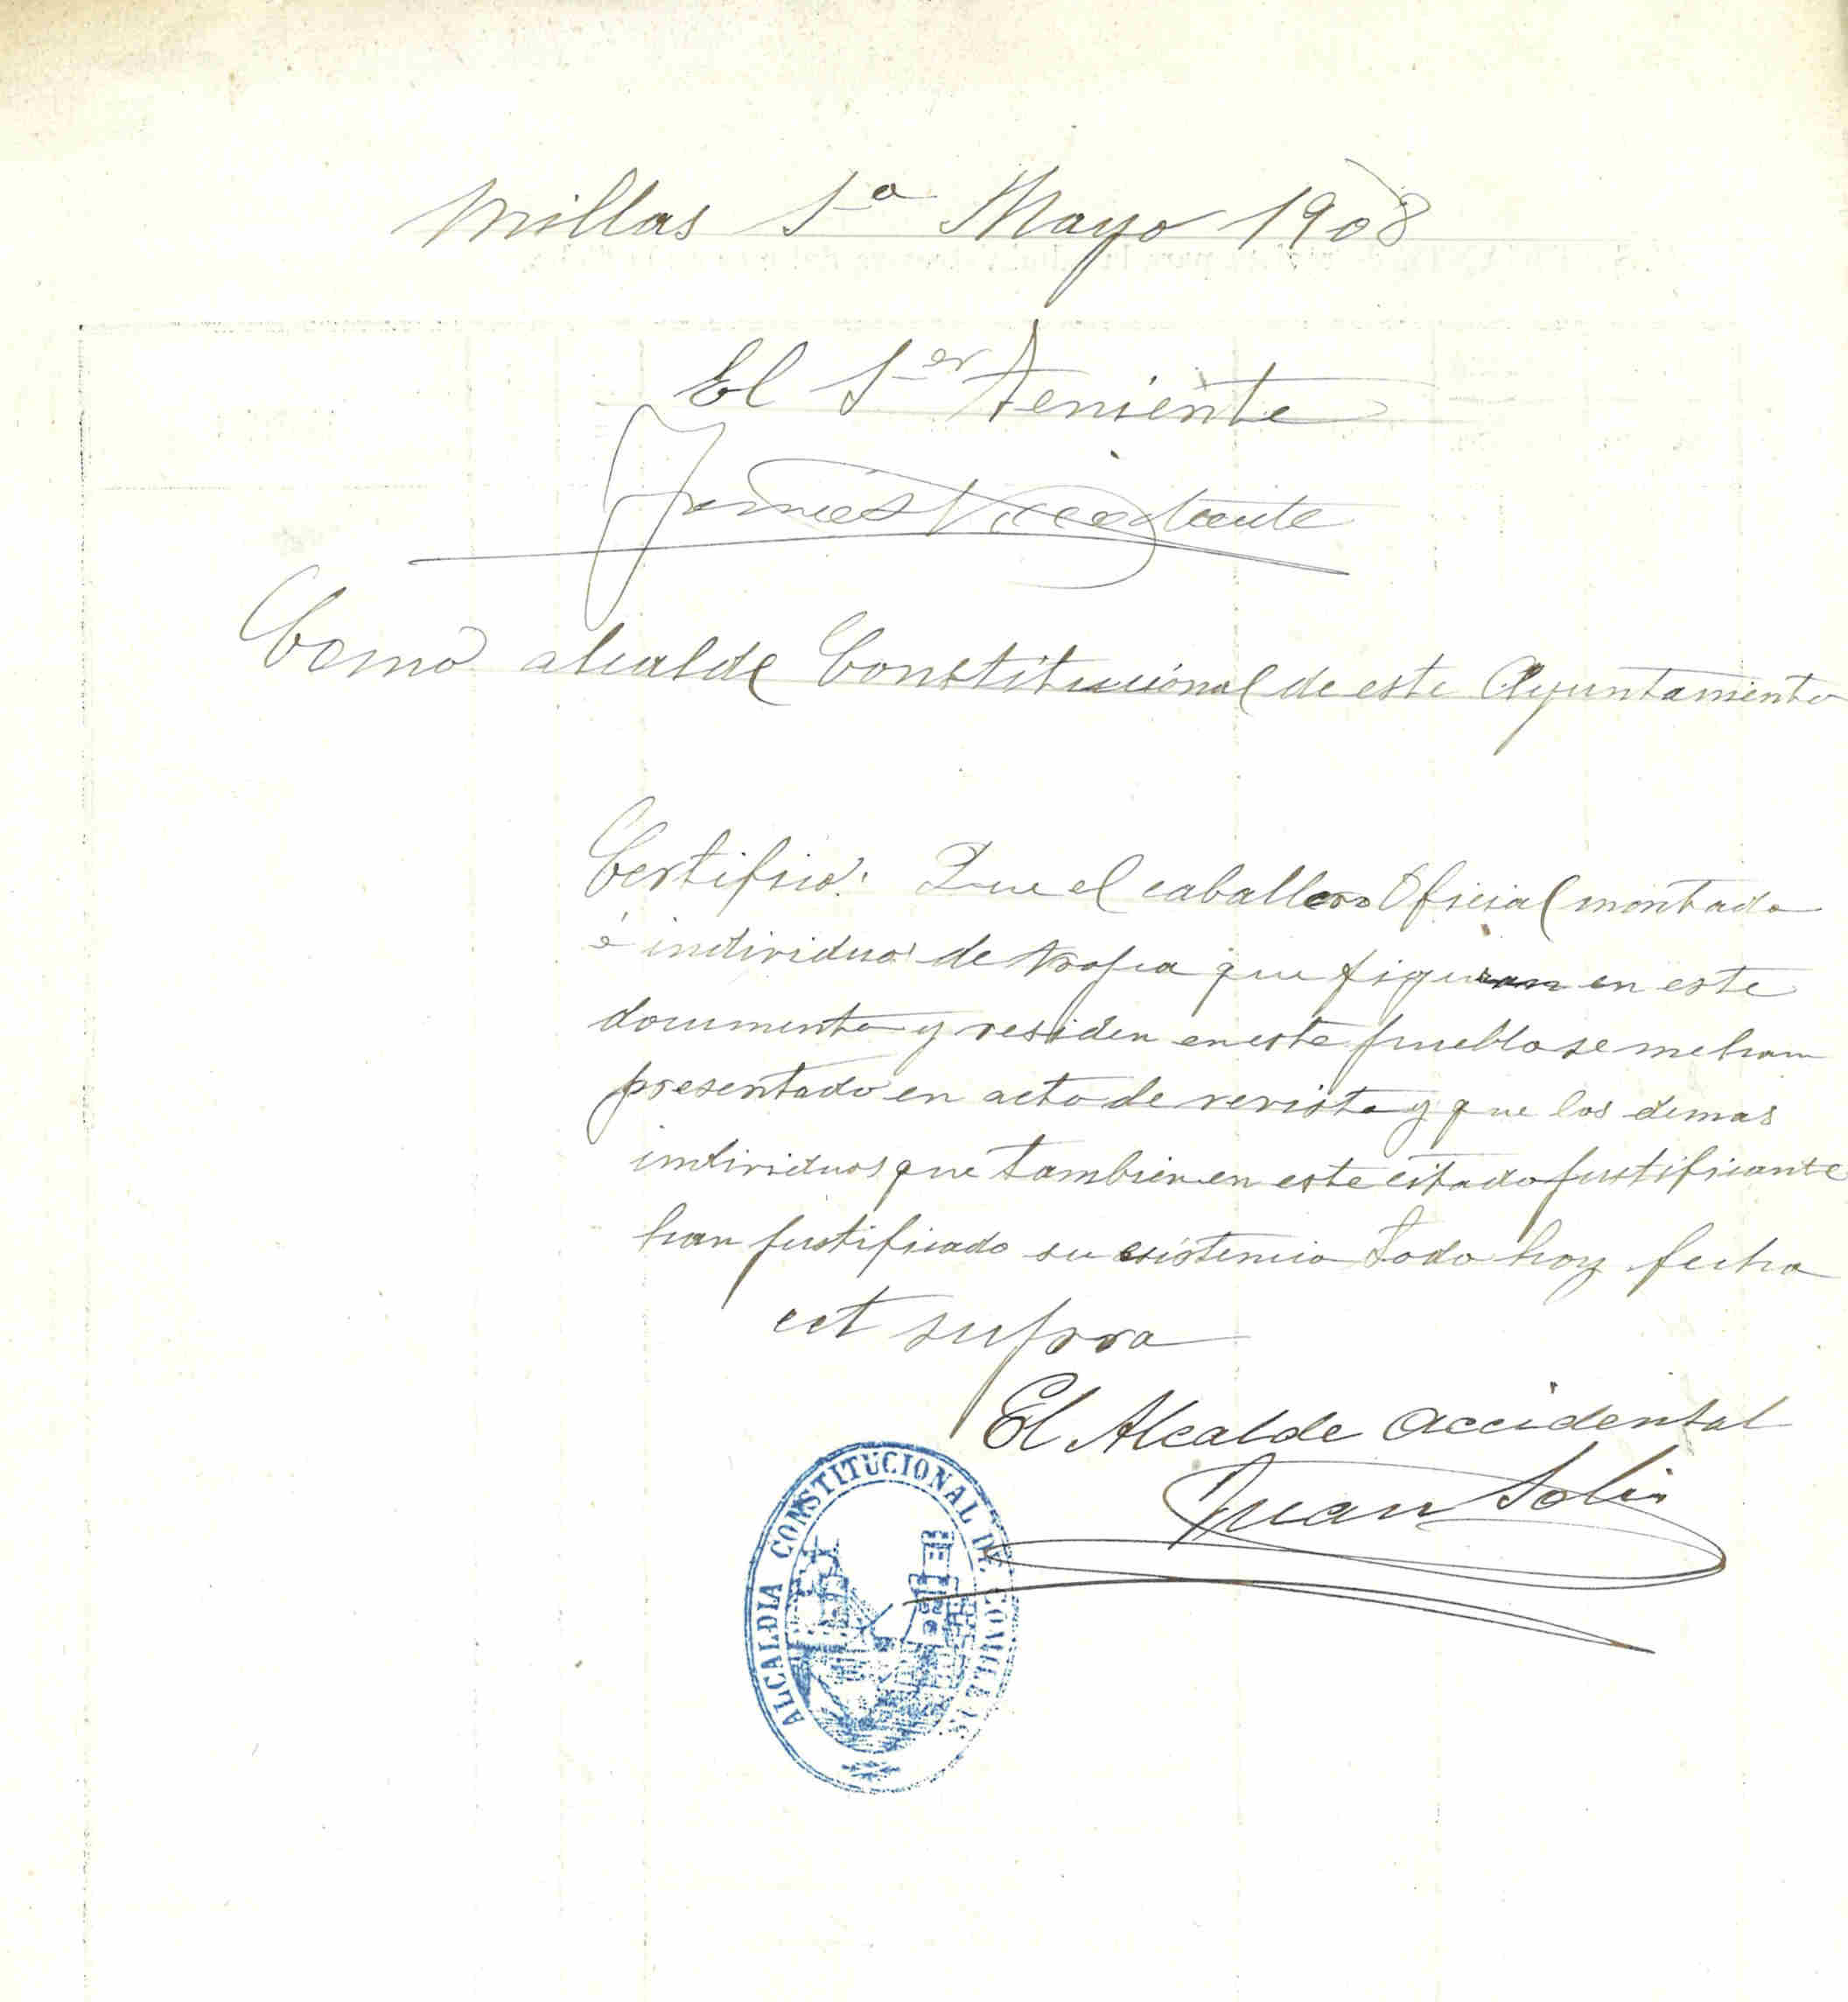 Millas 1ª Mayo 1908
El 1er Teniente
Como alcalde Constitucional de este Ayuntamiento
Certifico: Que el caballero Oficial montado
é individuos de tropa que figuran en este
documento y residen en este pueblo se me han
presentado en acto de revista y que los demas
individuos que tambien en este citado justificante
han justificado su existencia todo hoy fecha
ut supra
El Alcalde accidental
Juan Solis
ALCALDIA CONSTITUCIONAL DE COMILLAS